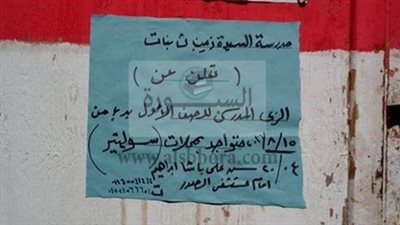 مدرسة السيدة زينب ث بنات
( تعلن عن )
الزى المدرسى للصف الأول بدءً من
١٥/٨/ متواجد بمحلات (سوليتير)
٢٠ ش على باشا ابراهيم
امام مستشفى الصدر
ت
السبورة
www.alsbbora.com